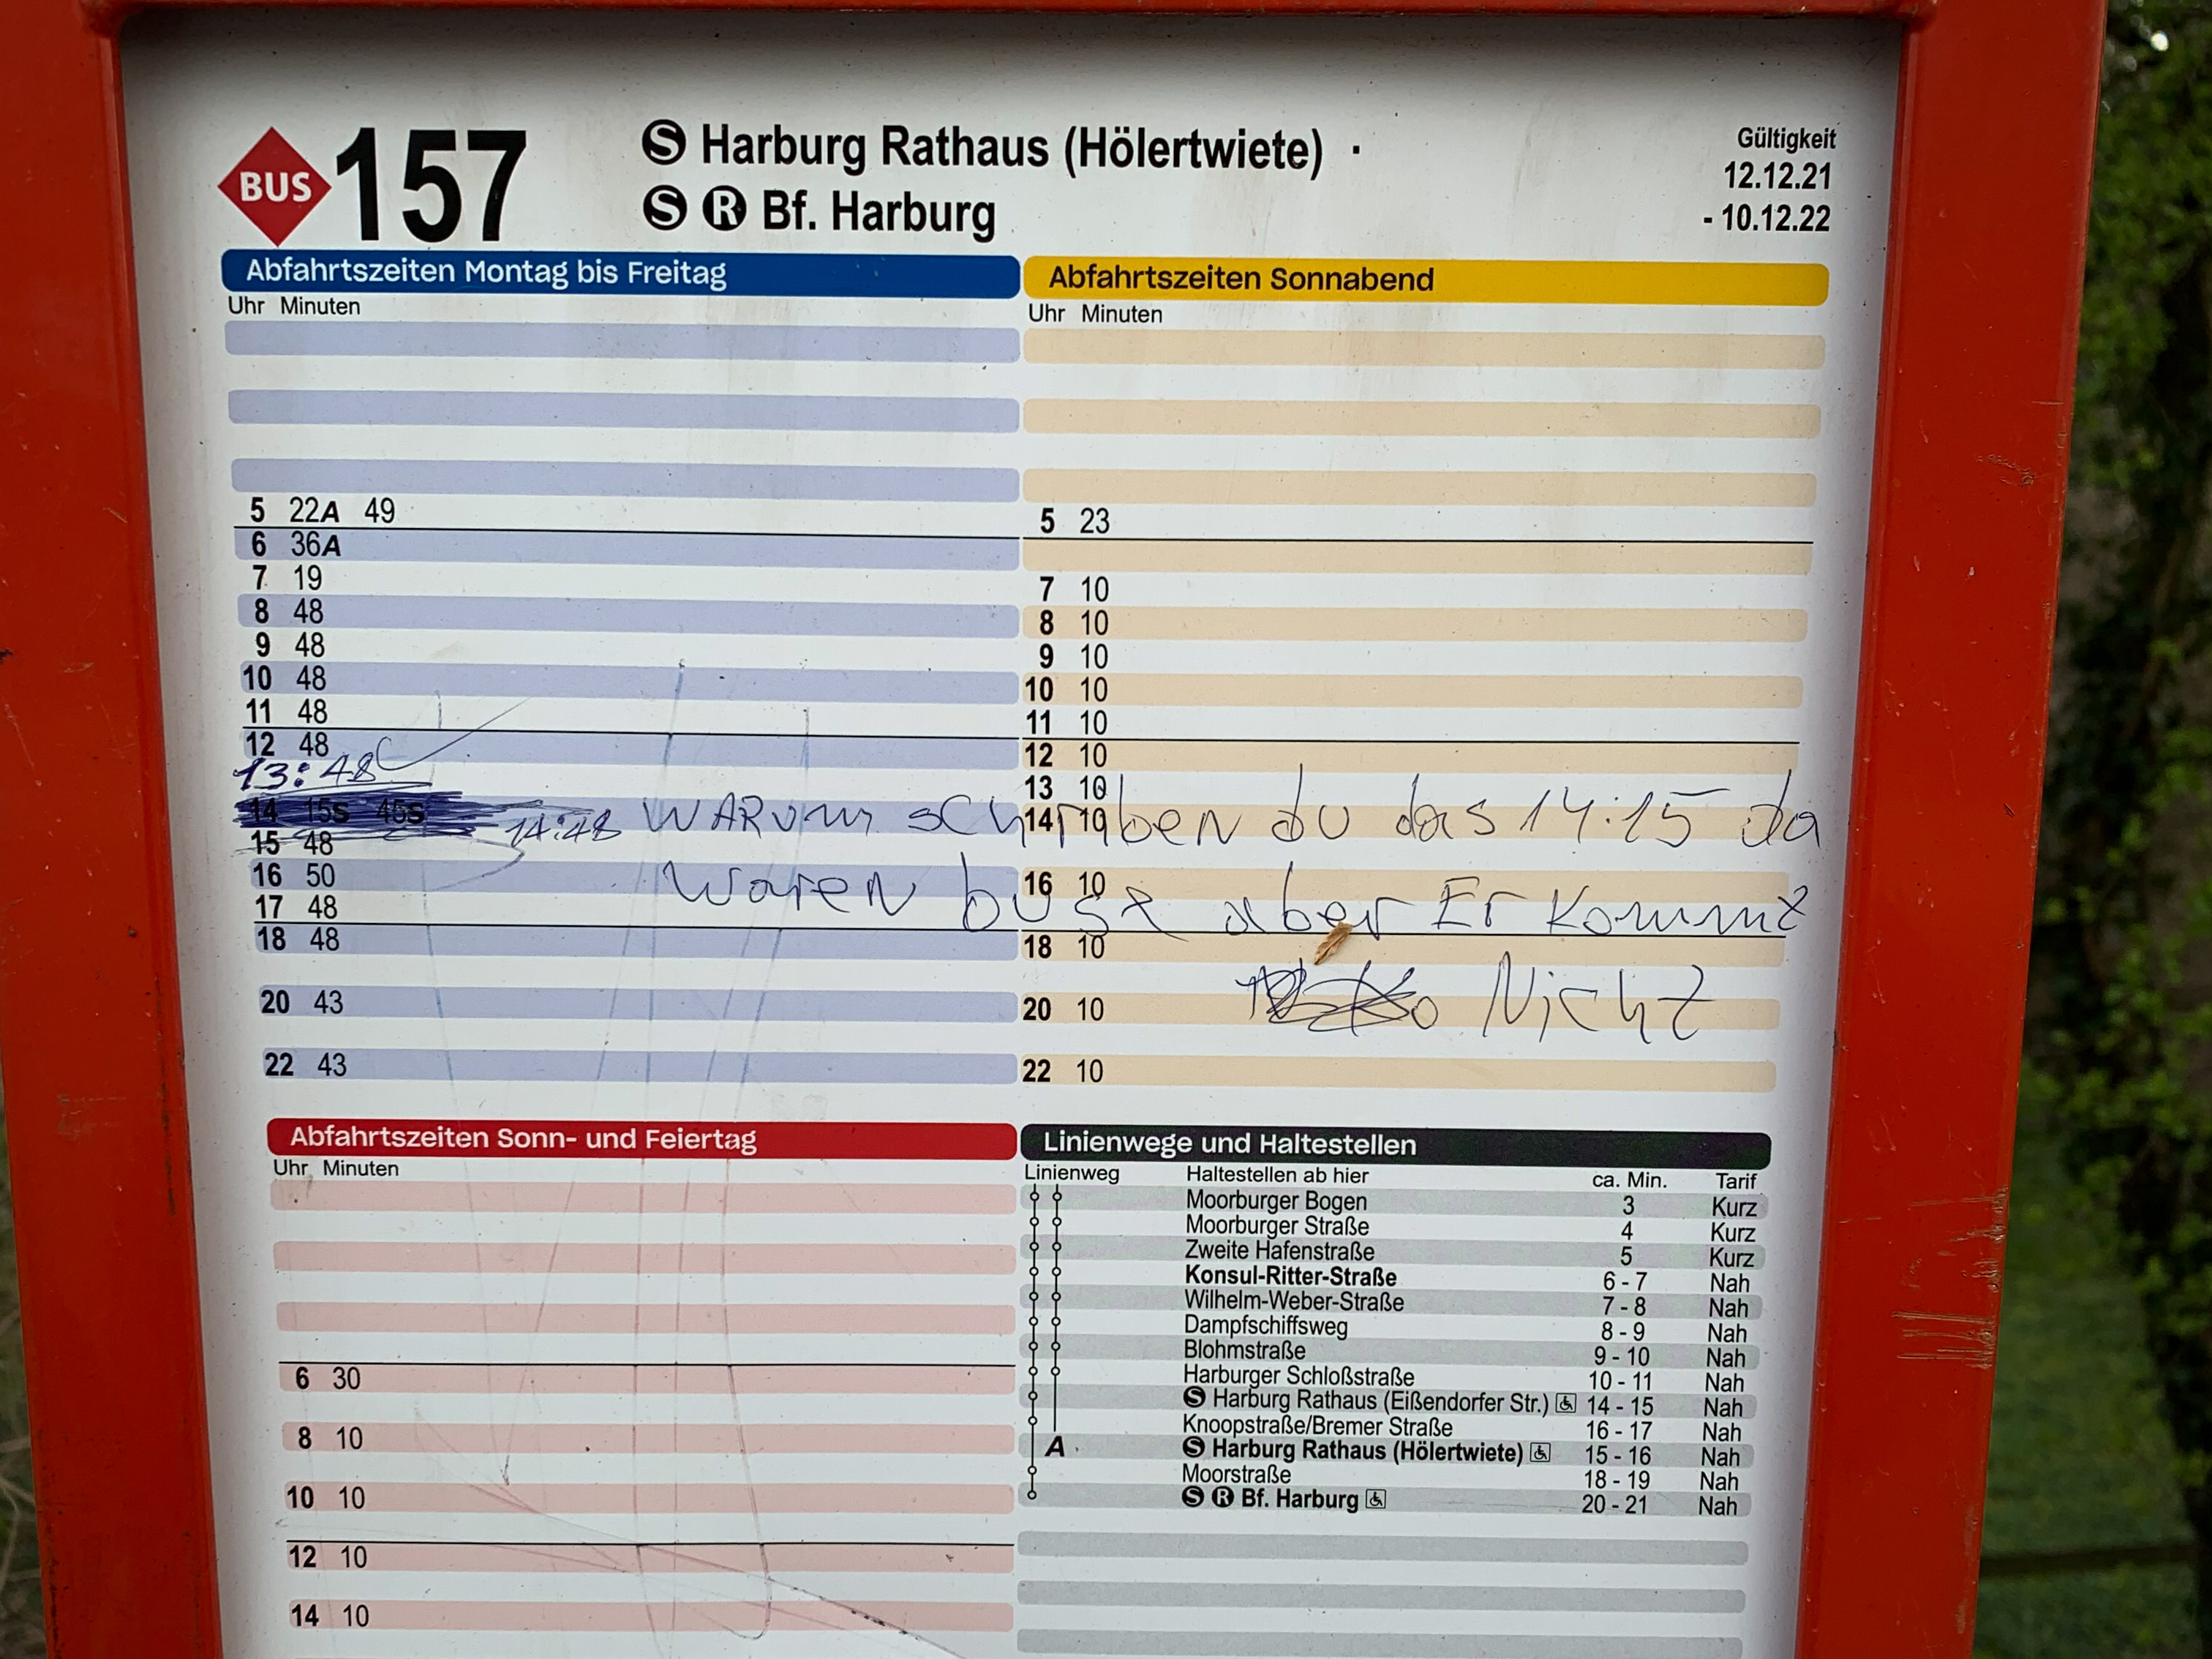 BUS 157
S Harburg Rathaus (Hölertwiete) ·
S R Bf. Harburg
Gültigkeit
12.12.21
- 10.12.22
Abfahrtszeiten Montag bis Freitag
Uhr Minuten
5 22A 49
6 36A
7 19
8 48
9 48
10 48
11 48
12 48
13:48
14 15s 45s 14:48
15 48
16 50
17 48
18 48
20 43
22 43
Abfahrtszeiten Sonnabend
Uhr Minuten
5 23
7 10
8 10
9 10
10 10
11 10
12 10
13 10
14 10
16 10
18 10
20 10
22 10
WARum schriben du das 14:15 da
waren aber Er kommt
Nicht
Abfahrtszeiten Sonn- und Feiertag
Uhr Minuten
6 30
8 10
10 10
12 10
14 10
Linienwege und Haltestellen
Linienweg Haltestellen ab hier ca. Min. Tarif
Moorburger Bogen 3 Kurz
Moorburger Straße 4 Kurz
Zweite Hafenstraße 5 Kurz
Konsul-Ritter-Straße 6 - 7 Nah
Wilhelm-Weber-Straße 7 - 8 Nah
Dampfschiffsweg 8 - 9 Nah
Blohmstraße 9 - 10 Nah
Harburger Schloßstraße 10 - 11 Nah
S Harburg Rathaus (Eißendorfer Str.) 14 - 15 Nah
Knoopstraße/Bremer Straße 16 - 17 Nah
A S Harburg Rathaus (Hölertwiete) 15 - 16 Nah
Moorstraße 18 - 19 Nah
S R Bf. Harburg 20 - 21 Nah